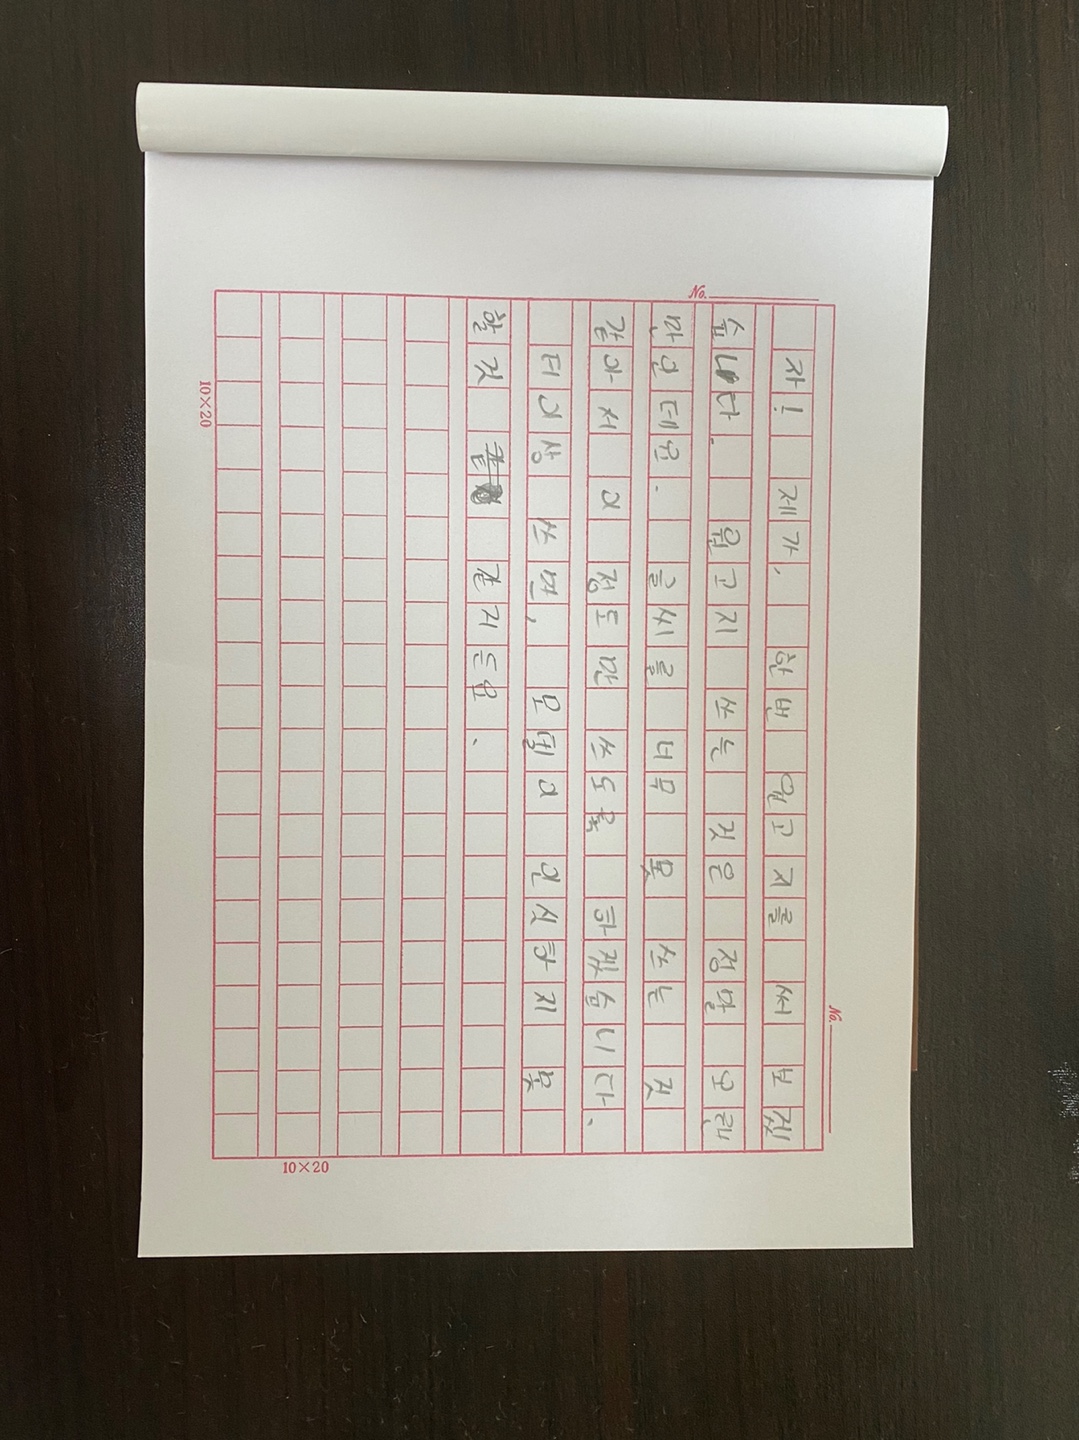 No.
자! 제가, 한번 원고지를 써 보겠
습니다. 원고지 쓰는 것은 정말 오랜
만인데요. 글씨를 너무 못 쓰는 것
같아서 이 정도만 쓰도록 하겠습니다.
터이상 쓰면, 모델이 인식하지 못
할 것 같지든요.
No.
10×20
10×20